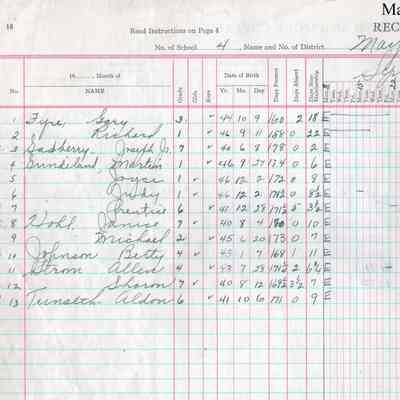 Ma
REC
16
Read Instructions on Page 4
No. of School 4, Name and No. of District May
19 Month of
No. NAME Grade Girls Boys Date of Birth Yr. Mo. Day Days Present Days Absent
1 Fyre, Gary 3 44 10 9 160 2 18 E
2 Richard 1 46 9 11 158 0 22 E
3 Gadberry Joseph Jr. 7 40 6 8 178 0 2 E
4 Gundeland Martin 1 46 9 0 6 E
5 Joyce 1 46 12 2 172 0 8 E
6 Judy 1 46 12 2 0 8½ E
7 Prentice 6 41 12 28 3½ E
8 Hohl Janice 7 40 8 4 180 0 10 E
9 Michael 2 45 6 20 173 0 7 E
10 Johnson Betty 4 1 7 168 1 11 E
11 Strom Allen 4 43 7 28 2 E
12 Sharon 7 40 8 12 7 E
13 Aldon 6 41 10 6 171 0 9 E